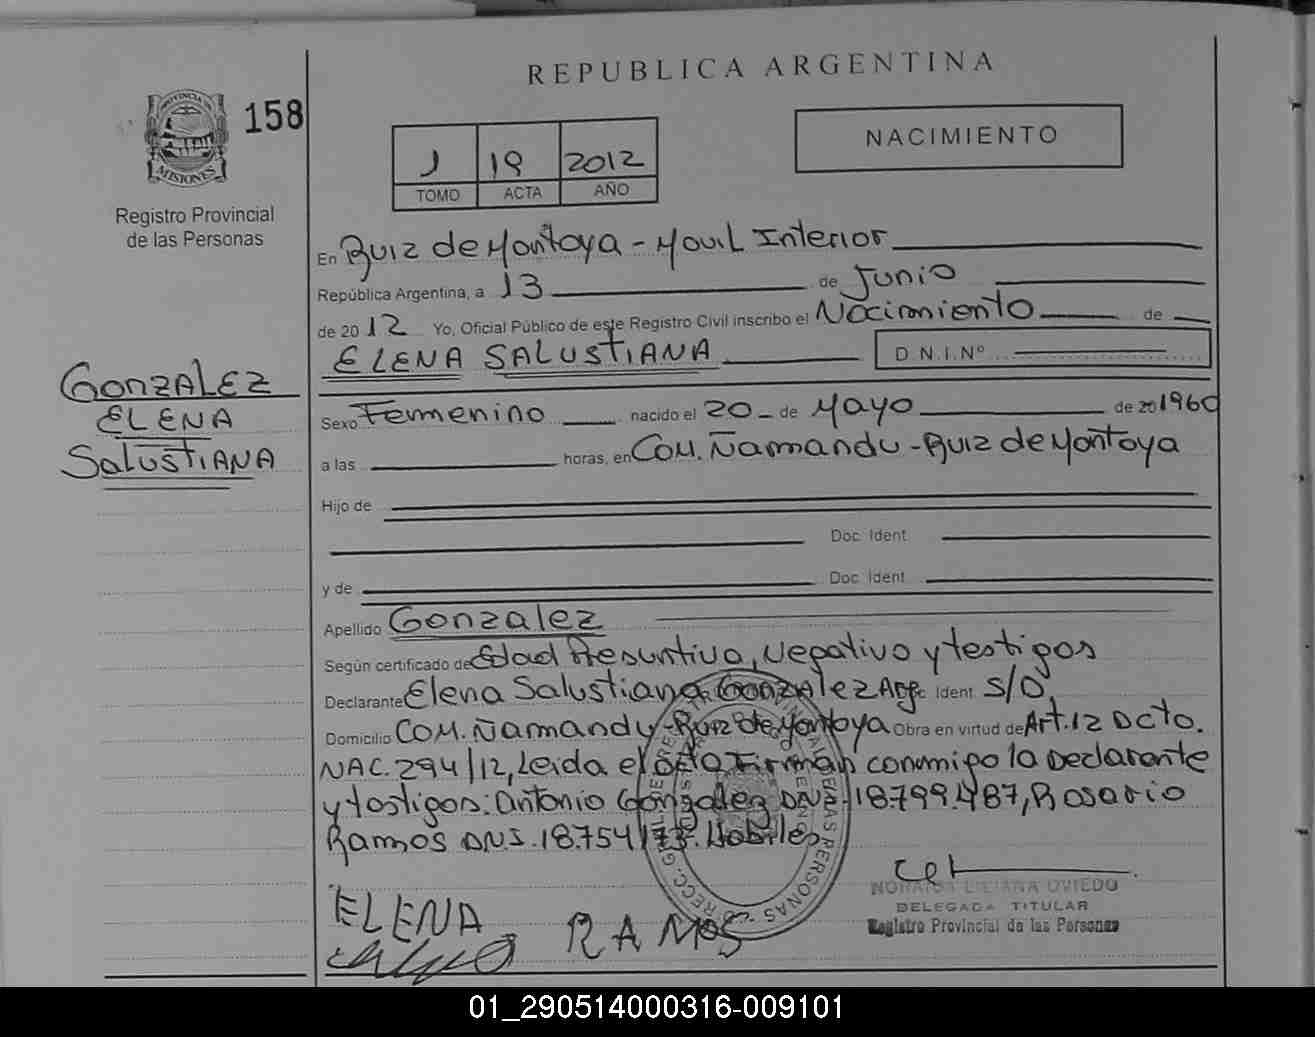 REPUBLICA ARGENTINA
PROVINCIA DE
MISIONES
158
Registro Provincial
de las Personas
J 19 2012
TOMO ACTA AÑO
NACIMIENTO
En Ruiz de Montoya - Movil Interior
República Argentina, a 13 de Junio
de 2012 Yo, Oficial Público de este Registro Civil inscribo el Nacimiento de
ELENA SALUSTIANA D.N.I.Nº
GONZALEZ
ELENA
SALUSTIANA
Sexo Femenino nacido el 20 - de Mayo de 20 1960
a las horas, en Com. Ñamandu - Ruiz de Montoya
Hijo de
Doc. Ident.
y de Doc. Ident.
Apellido Gonzalez
Según certificado de Edad Presuntiva, Negativo y testigos
Declarante Elena Salustiana Gonzalez Arg. Ident. S/D,
Domicilio Com. Ñamandu - Ruiz de Montoya Obra en virtud de Art. 12 Dcto.
NAC. 294/12, Leida el acta Firman conmigo la Declarante
y testigos: Antonio Gonzalez DNI. 18.799.487, Rosario
Ramos DNI. 18.754.173. Habiles
ELENA
RAMOS
NORAIDA LILIANA OVIEDO
DELEGADA TITULAR
Registro Provincial de las Personas
01_290514000316-009101